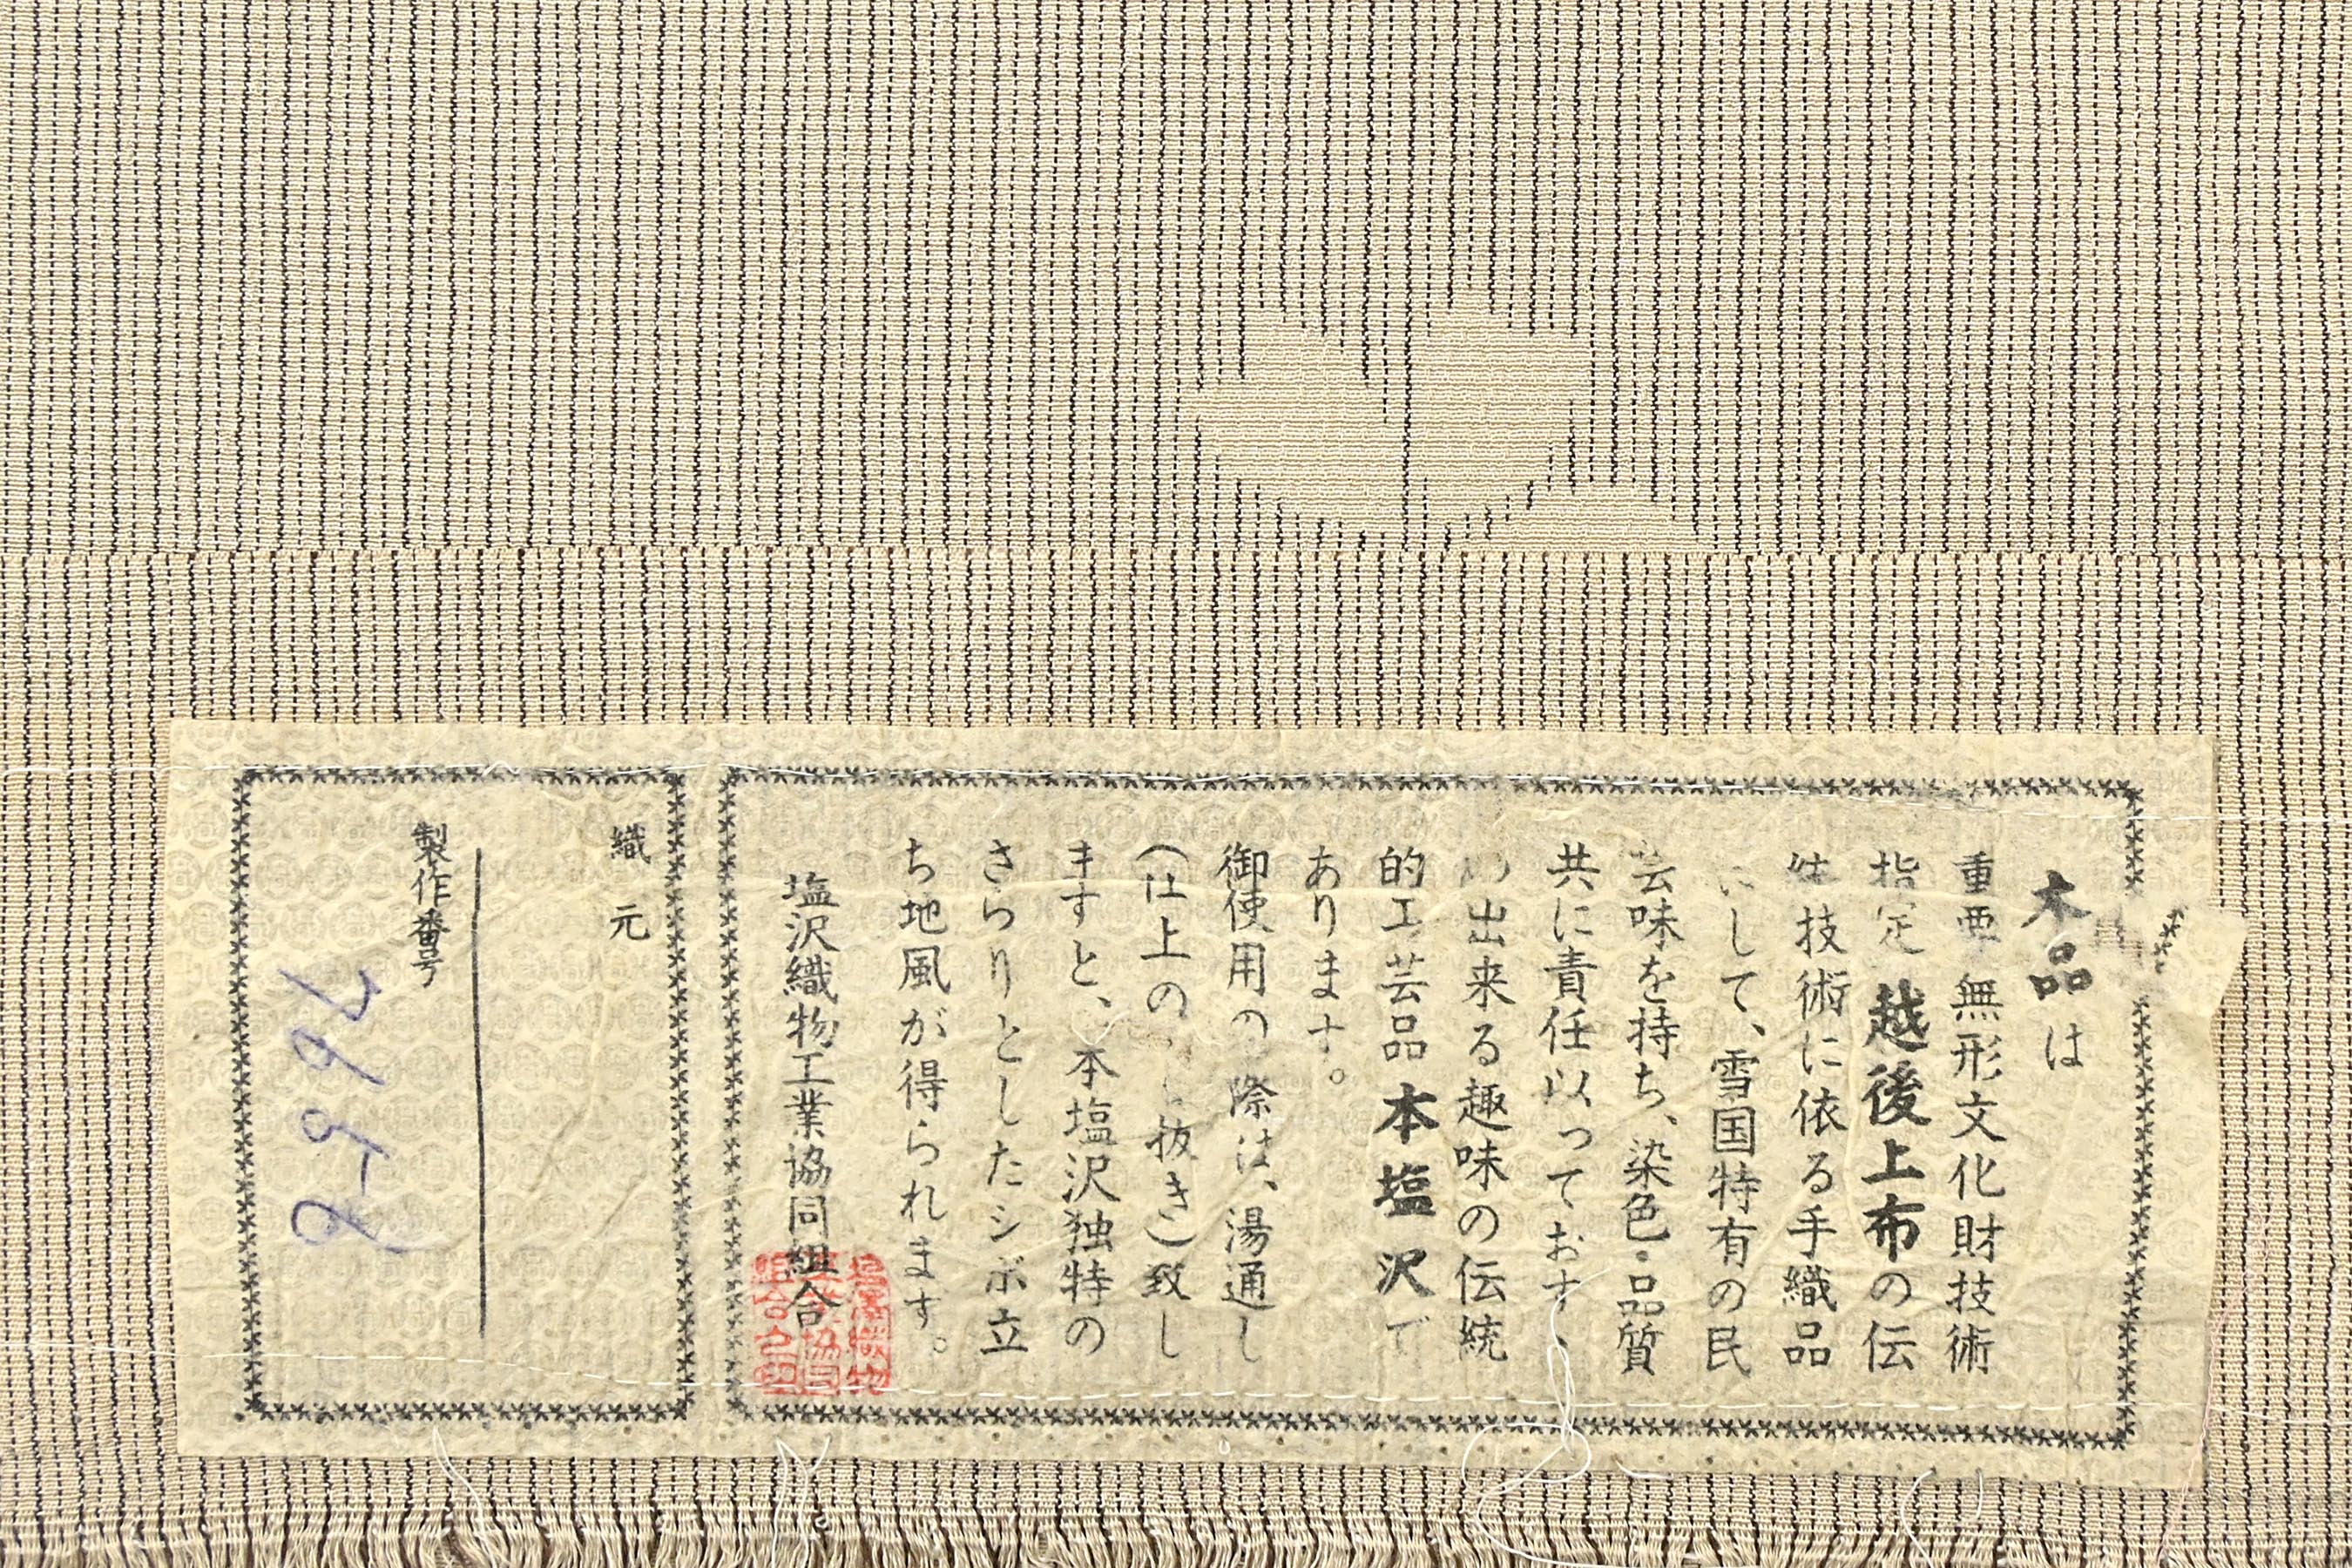 本品は
重要無形文化財技術
指定越後上布の伝
統技術に依る手織品
にして、雪国特有の民
芸味を持ち、染色・品質
共に責任以っておす、
め出来る趣味の伝統
的工芸品本塩沢で
あります。
御使用の際は、湯通し
(仕上の抜き)致し
ますと、本塩沢独特の
さらりとしたシボ立
ち地風が得られます。
塩沢織物工業協同組合
塩沢織物
工業協同
組合之印
織元
製作番号